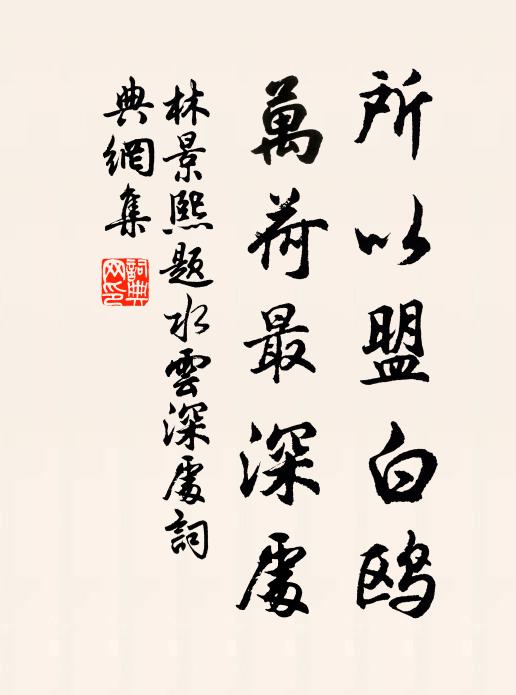 所以盟白鸥
萬荷最深處
林景熙题水雲深處詞
典網集
詞典
网印